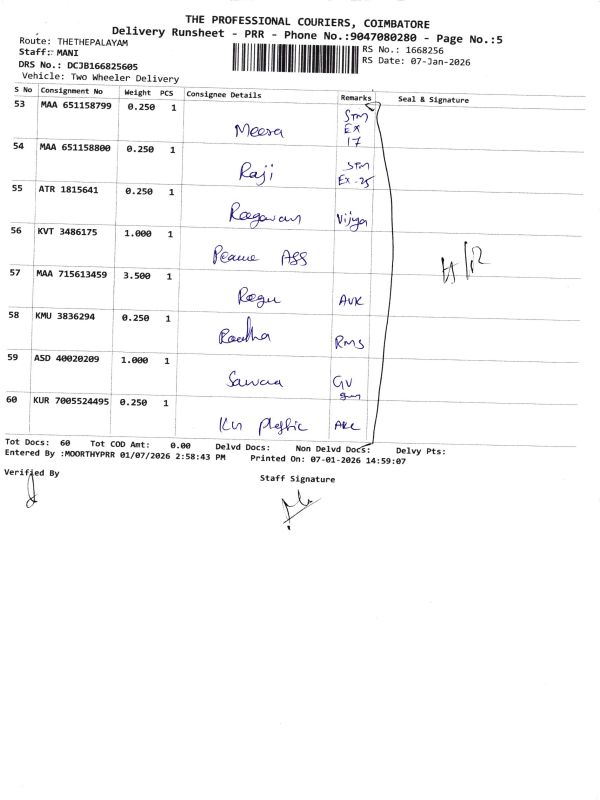 THE PROFESSIONAL COURIERS, COIMBATORE
Delivery Runsheet - PRR - Phone No.:9047080280 - Page No.:5
Route: THETHEPALAYAM
RS No.: 1668256
Staff: MANI
RS Date: 07-Jan-2026
DRS No.: DCJB166825605
Vehicle: Two Wheeler Delivery
S No Consignment No Weight PCS Consignee Details Remarks Seal & Signature
53 MAA 651158799 0.250 1 Meera STM EX 17
54 MAA 651158800 0.250 1 Raji STM EX-25
55 ATR 1815641 0.250 1 Vijya
56 KVT 3486175 1.000 1 ASS
57 MAA 715613459 3.500 1 Ragu AVK
58 KMU 3836294 0.250 1 Raadha RMS
59 ASD 40020209 1.000 1 GV
60 KUR 7005524495 0.250 1
Tot Docs: 60 Tot COD Amt: 0.00 Delvd Docs: Non Delvd Docs: Delvy Pts:
Entered By :MOORTHYPRR 01/07/2026 2:58:43 PM Printed On: 07-01-2026 14:59:07
Verified By
Staff Signature